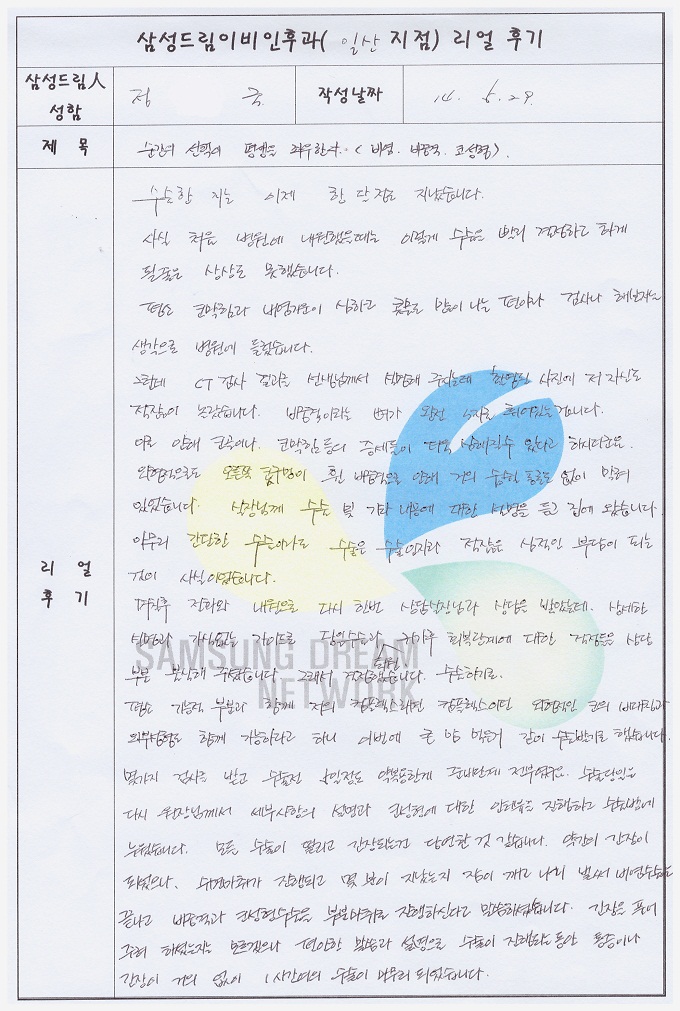 삼성드림이비인후과( 일산 지점) 리얼 후기
삼성드림人
성함
정 국
작성날짜
14. 5. 29.
제 목
순간의 선택이 평생을 좌우한다. ( 비염. 비중격. 코성형).
리 얼
후 기
수술한 지는 이제 한 달 정도 지났습니다.
사실 처음 병원에 내원했을때는 이렇게 수술을 빨리 결정하고 하게
될줄은 상상도 못했습니다.
평소 코막힘과 내염기운이 심하고 콧물도 많이 나는 편이라 검사나 해보자는
생각으로 병원에 들렀습니다.
그런데 CT 검사 결과를 선생님께서 설명해 주시는데 촬영된 사진에 저 자신도
적잖이 놀랐습니다. 비중격이라는 뼈가 완전 S자로 휘어있는겁니다.
이로 인해 코골이나. 코막힘 등의 증세들이 더욱 심해질수 있다고 하시더군요.
외형적으로도 오른쪽 콧구멍이 휜 비중격으로 인해 거의 숨쉴 통로도 없이 막혀
있었습니다. 실장님께 수술 및 기타 내용에 대한 설명을 듣고 집에 왔습니다.
아무리 간단한 수술이라도 수술은 수술인지라 적잖은 심적인 부담이 되는
것이 사실이었습니다.
며칠후 전화와 내원으로 다시 한번 상담실장님과 상담을 받았는데. 상세한
설명과 가식없는 가이드로 당일수술과 퇴원 하기후 회복단계에 대한 걱정들을 상당
부분 불식해 주셨습니다. 그래서 결정했습니다. 수술하기로.
평소 기능적 부분과 함께 저의 컴플렉스라면 컴플렉스이던 외형적인 코의 비대칭과
의부성형도 함께 가능하다고 하니 이번에 큰 맘 먹은거 같이 수술받기로 했습니다.
몇가지 검사를 받고 수술전 4일정도 약복용한게 준비단계 전부였구요. 수술당일은
다시 원장님께서 세부사항의 설명과 코성형에 대한 안내등을 진행하고 수술방에
누웠습니다. 모든 수술이 떨리고 긴장되는건 당연한 것 같습니다. 약간의 긴장이
되었으나. 수면마취가 진행되고 몇 분이 지났는지 잠이 깨고 나니 벌써 비염수술은
끝나고 비중격과 코성형수술을 부분마취로 진행하신다고 말씀하셨습니다. 긴장을 풀어
주려 하셨는지는 모르겠으나 편안한 말씀과 설명으로 수술이 진행되는 동안 통증이나
긴장이 거의 없이 1시간여의 수술이 마무리 되었습니다.
SAMSUNG DREAM
NETWORK